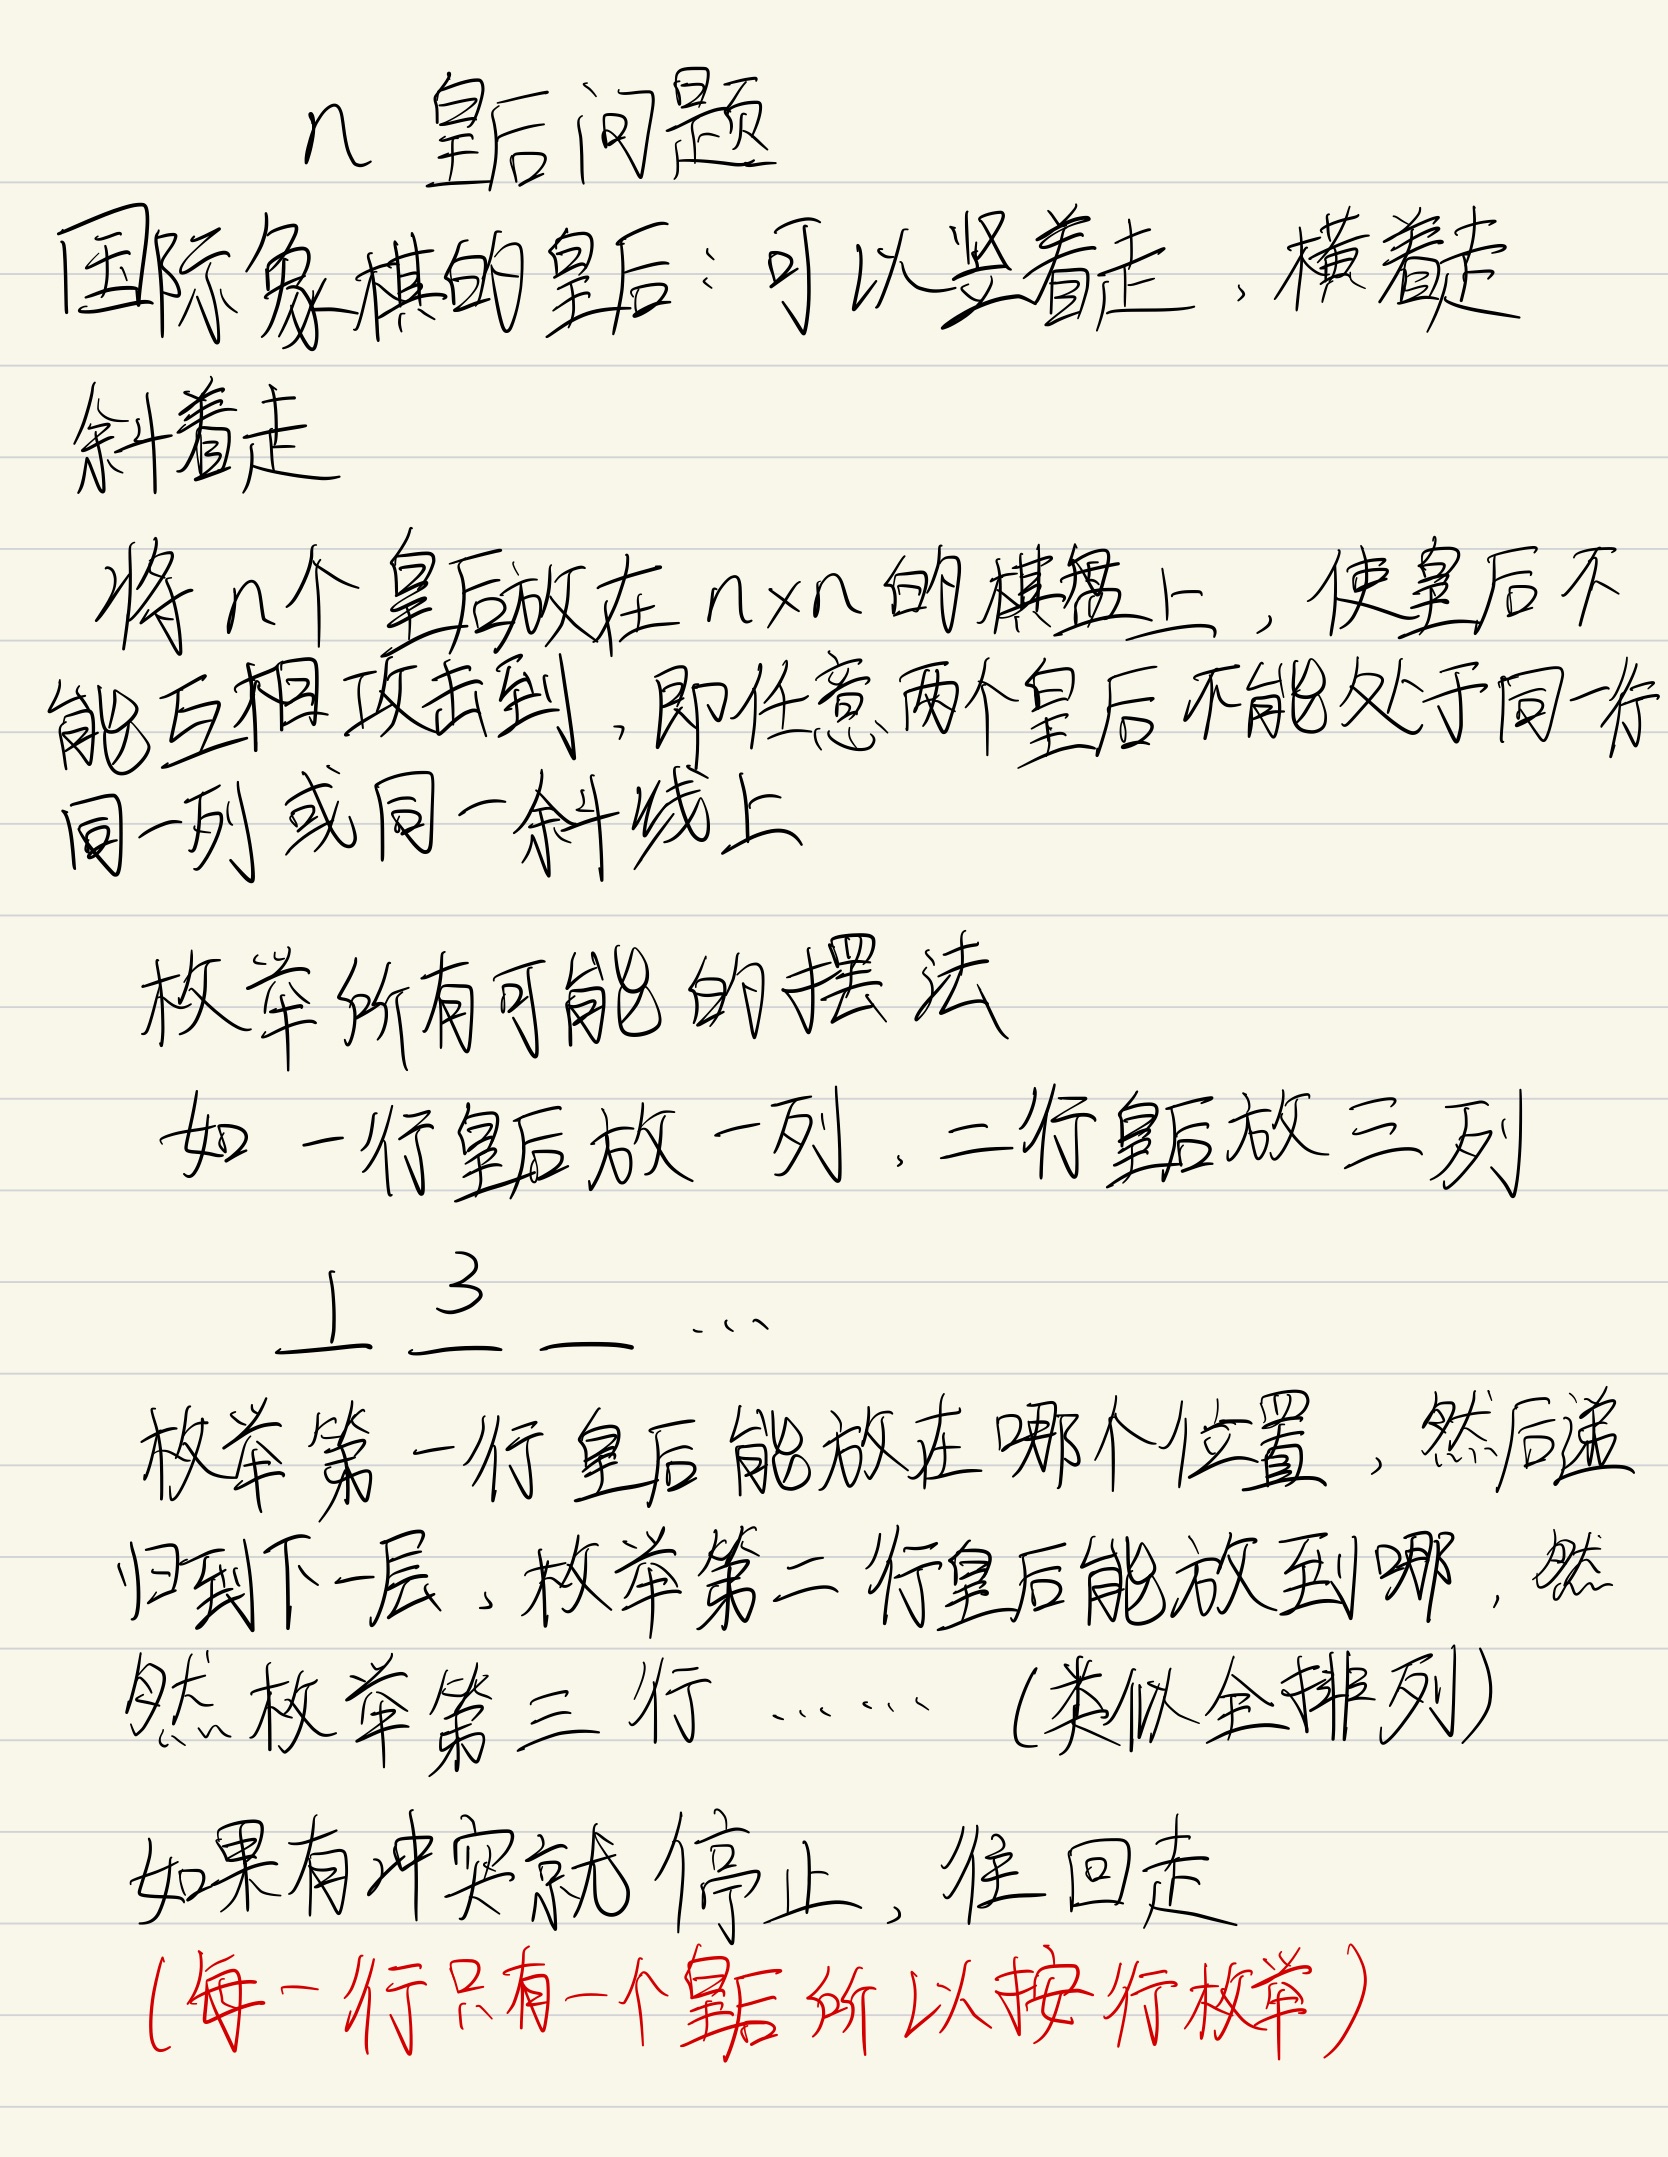 n 皇后问题
国际象棋的皇后：可以竖着走，横着走
斜着走
将n个皇后放在n×n的棋盘上，使皇后不
能互相攻击到，即任意两个皇后不能处于同一行
同一列或同一斜线上
枚举所有可能的摆法
如一行皇后放一列，二行皇后放三列
1 3 ...
枚举第一行皇后能放在哪个位置，然后递
归到下一层，枚举第二行皇后能放到哪，然
然枚举第三行……（类似全排列）
如果有冲突就停止，往回走
（每一行只有一个皇后所以按行枚举）